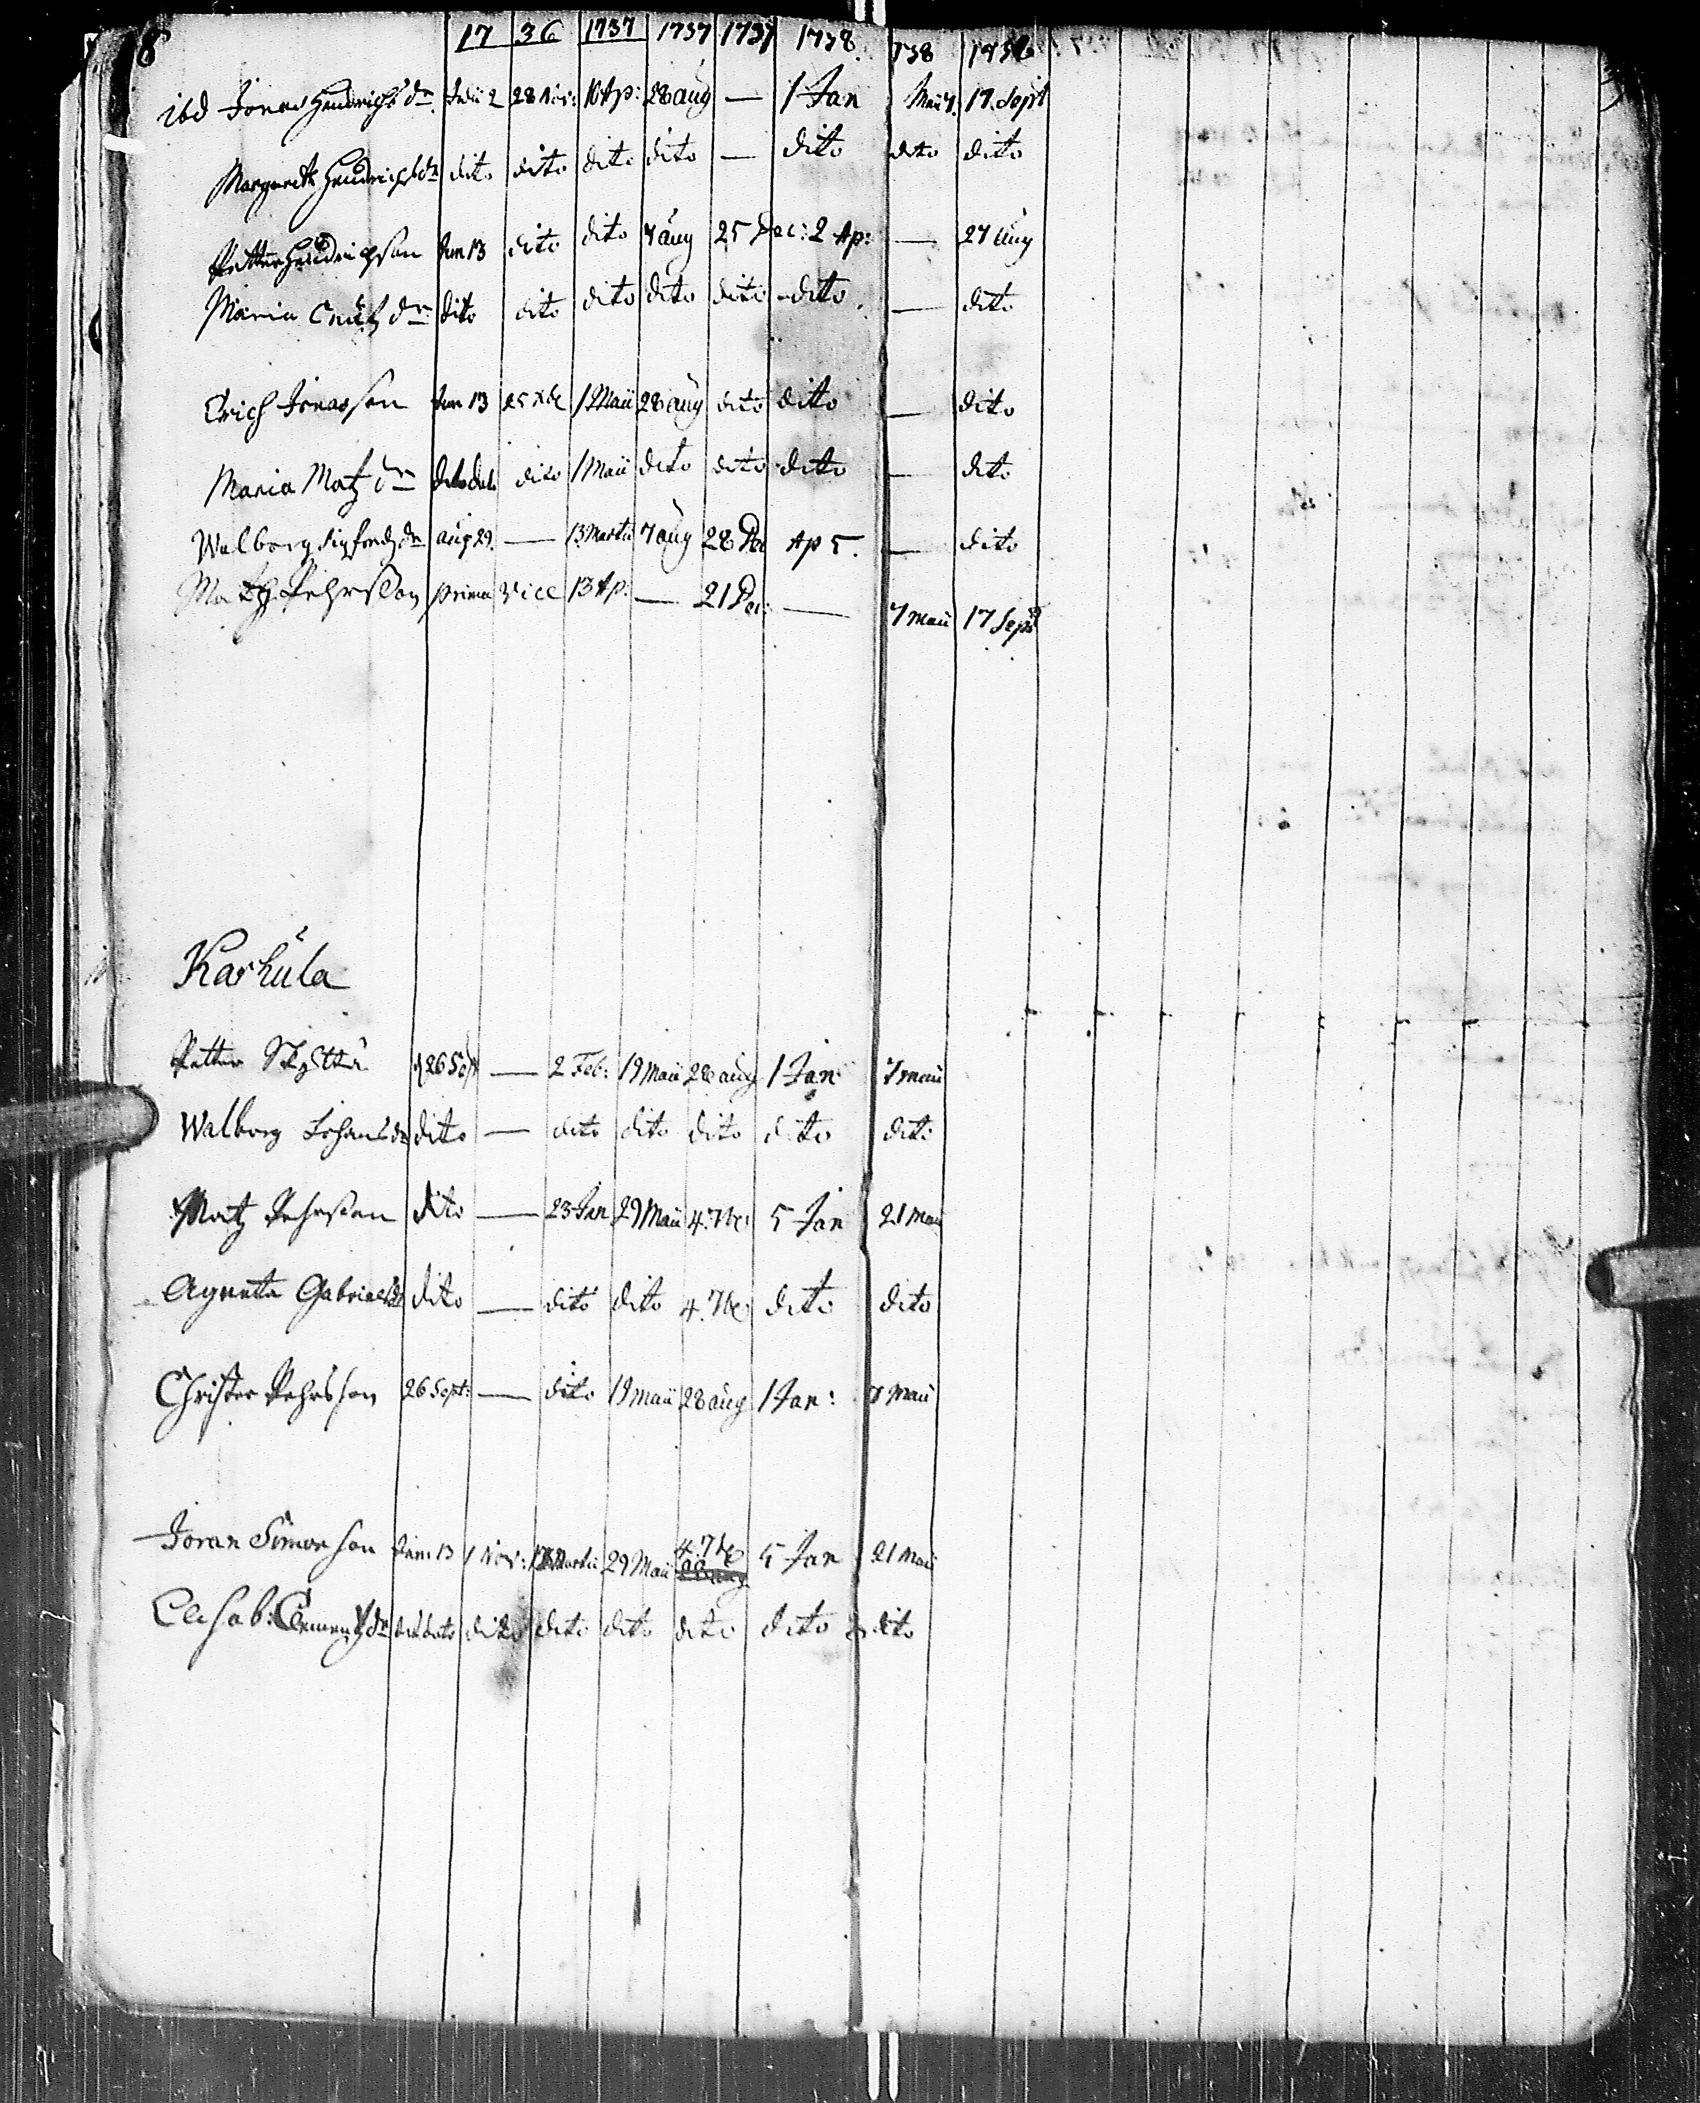 8 17 36 1737 1737 1737 1738 738 1738
ibd Jonas Hendrichs dr Julii 2 28 Nov: 10 Ap: 28 aug — 1 Jan Maii 7. 17 Sept
Margareta Hendrichsdr dito dito dito dito — dito dito dito
Petter Hendrichson Jun 13 dito dito 7 aug 25 Dec: 2 Ap: — 27 aug
Maria Cnutz dr: dito dito dito dito dito dito — dito
Erich Jonasson Jun 13 25 Xbr 1 Maii 28 aug dito dito — dito
Maria Matz dr dito dito 1 Maii dito dito dito — dito
Walborg Sigfredz dr aug 29. — 13 Martii 7 aug 28 Dec Ap 5. — dito
Matz Pehrsson prima vice 13 Ap: — 21 Dec: — 7 maii 17 Sept
Karhula
Petter 26 Sept — 2 Feb: 19 Maii 28 aug 1 Jan 7 maii
Walborg Johansdr dito — dito dito dito dito dito
Matz Pehrsson dito — 23 Jan 29 Maii 4. 7br 5 Jan 21 Maii
Agneta Gabrielsdr dito — dito dito 4. 7br dito dito
Christer Pehrsson 26 Sept: — dito 19 maii 28 aug 1 Jan: 7 Maii
Joran Simonson Jun: 13 1 Nov: Martii 29 Maii 4. 7br 28 aug 5 Jan 21 Maii
Elisab: Clementzdr dito dito dito dito dito dito dito